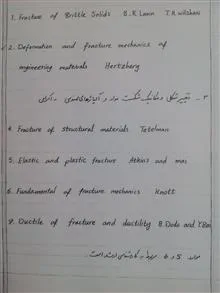 1. Fracture of Brittle Solids B. R. Lawn T. R. Wilshaw
2. Deformation and fracture mechanics of
engineering materials Hertzberg
۳ - تغییر شکل و مکانیک شکست مواد و آلیاژهای مهندسی -
4 Fracture of structural materials Tetelman
5. Elastic and plastic fracture Atkins and mai
6. Fundamental of fracture mechanics Knott
7. Ductile of fracture and ductility B. Dodd and Y. Bai
موارد 5 و 6 مربوط به کارشناسی ارشد است.